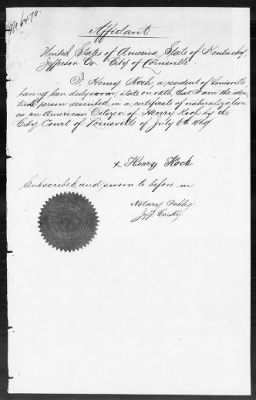 Affidavit
United States of America, State of Kentucky
Jefferson Co. City of Louisville
I Henry Koch, a resident of Louisville
having been duly sworn, state on oath, that I am the iden-
tical person described in a certificate of naturalization
as an American Citizen of Henry Koch by the
City Court of Louisville of July 6th
x Henry Koch
Subscribed and sworn to before me
Notary Public
Jeff County